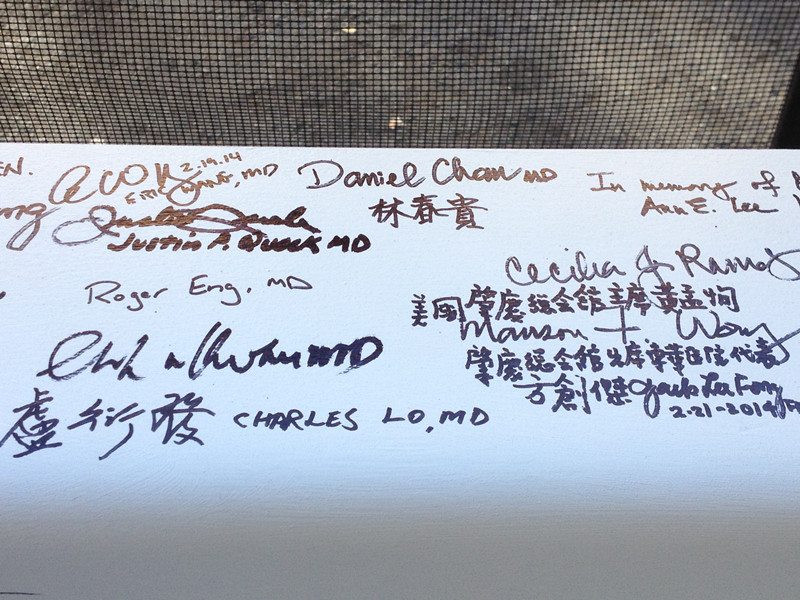 EN.
2.19.14
MD
Daniel Chan MD
林春貴
In memory of
Ann E. Lee
Justin P. Quock MD
Roger Eng, MD
Cecilia J. Ramos
美國肇慶總会館主席黃孟恂
Manson T Wong
MD
肇慶總会館主席東華医院代表
方創傑 Jack Lee Fong
2-21-2014
盧衍發 CHARLES LO, MD